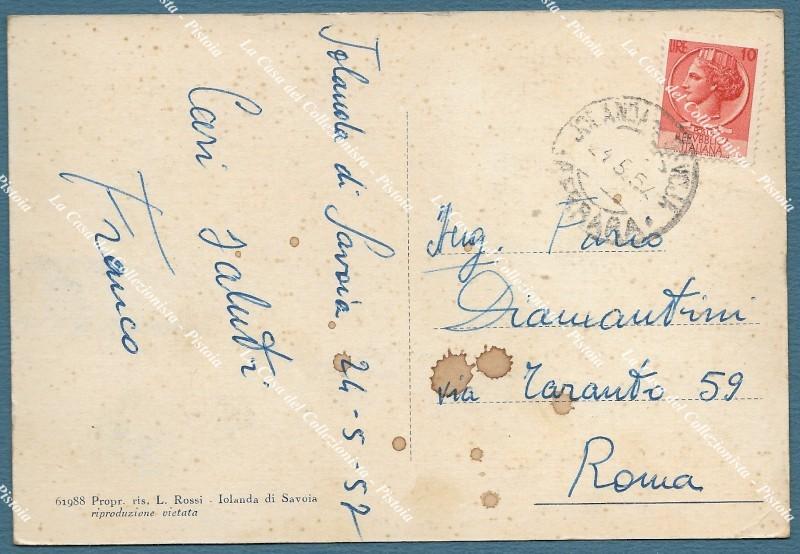 Jolanda di Savoia 24-5-54
Cari saluti
Franco
LIRE 10
REPVBBLICA
ITALIANA
24.5.54
FERRARA
Ing.
Diamantini
via Taranto 59
Roma
61988 Propr. ris. L. Rossi - Iolanda di Savoia
riproduzione vietata
La Casa del Collezionista - Pistoia